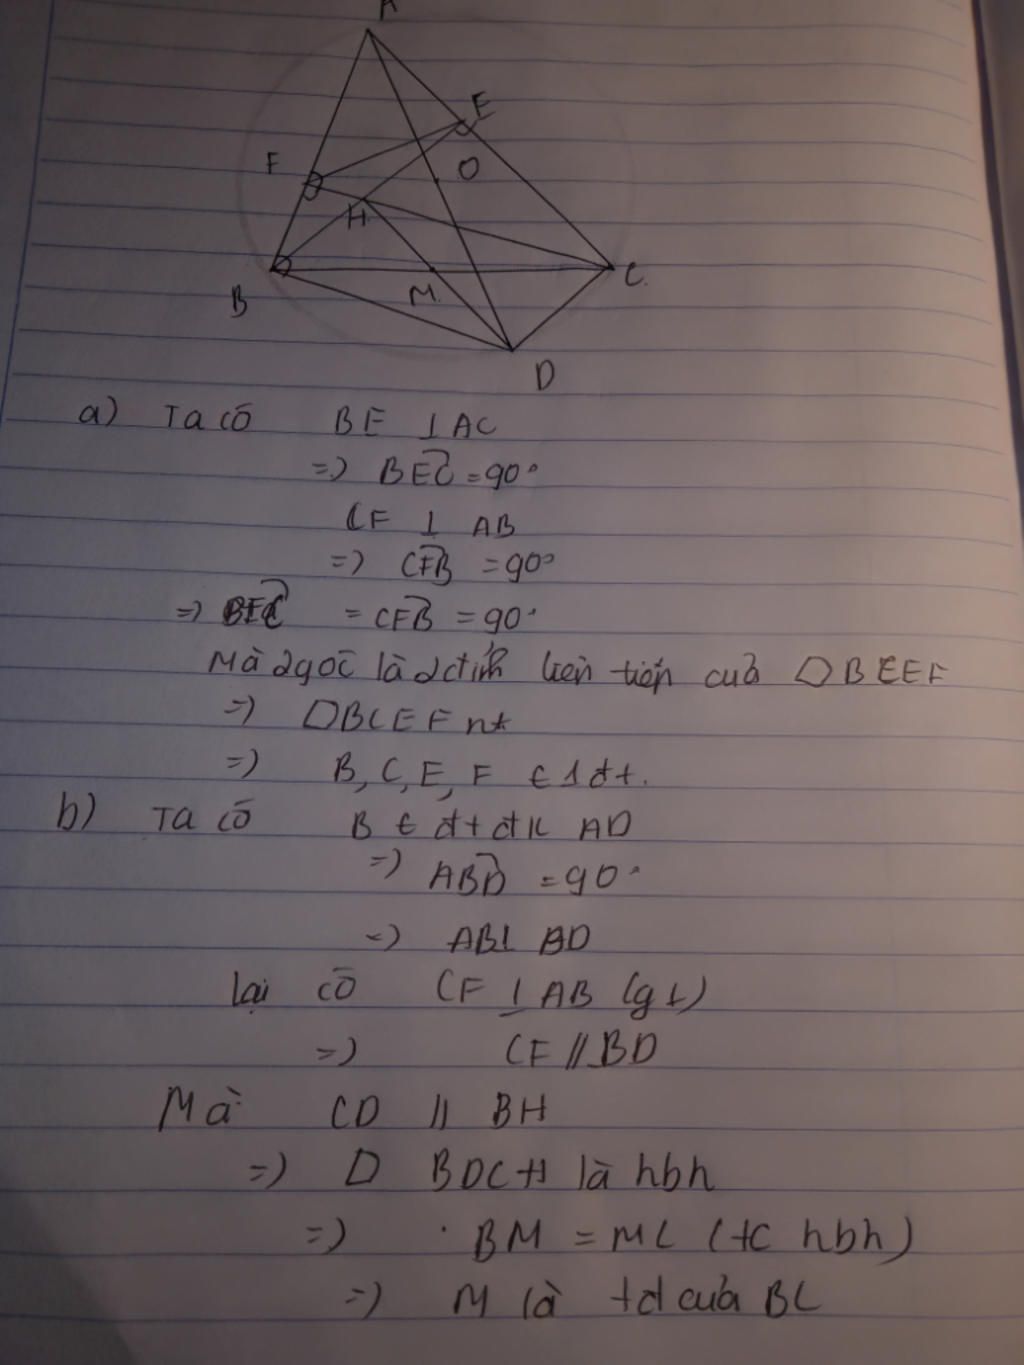 A
E
F
O
H
B
M
C
D
a) Ta có BE ⊥ AC
=> BEC = 90°
CF ⊥ AB
=> CFB = 90°
=> BEC = CFB = 90°
Mà 2 góc là 2 đỉnh liên tiếp của □ BEEF
=> □BCEF nt
=> B, C, E, F ∈ 1 đt.
b) Ta có B ∈ đt đk AD
=> ABD = 90°
=> AB ⊥ BD
lại có CF ⊥ AB (gt)
=> CF // BD
Mà CD // BH
=> □ BDCH là hbh
=> BM = MC (tc hbh)
=> M là tđ của BC